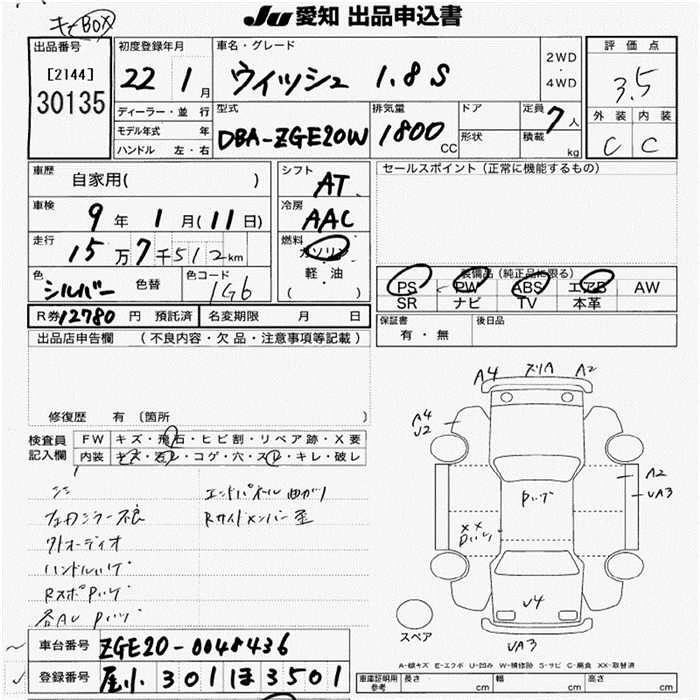 Ju 愛知 出品申込書
キーBOX
出品番号
[2144]
30135
初度登録年月
22 1 月
ディーラー・並 行
モデル年式 年
ハンドル 左・右
車名・グレード
ウィッシュ 1.8S
2WD
・
4WD
型式
DBA-ZGE20W
排気量
1800 CC
ドア
形状
定員
7 人
積載 kg
評価点
3.5
外装 内装
C C
車歴
自家用( )
車検
9 年 1 月(11日)
走行
15 万 7 千 512 km
色
シルバー 色替
色コード
1G6
シフト
AT
冷房
AAC
燃料
ガソリン
軽・油
( )
セールスポイント(正常に機能するもの)
装備品(純正品に限る)
PS PW ABS エアB AW
SR ナビ TV 本革
R券 12780 円 預託済 名変期限 月 日
保証書
有・無
後日品
出品店申告欄 (不良内容・欠品・注意事項等記載)
修復歴 有 〔箇所 〕
検査員
記入欄
FW キズ・飛石・ヒビ割・リペア跡・X要
内装 キズ・汚レ・コゲ・穴・スレ・キレ・破レ
エンドパネル曲がり
Rサイドメンバー歪
フェンダミラー不良
外オーディオ
ハンドルハゲ
A4 スリA A2
A4
U2
A2
UA3
Pハゲ
XX
U4
UA3
スペア
車台番号 ZGE20-0048436
登録番号 尾小 301 ほ 3501
A-線キズ E-エクボ U-凹み W-補修跡 S-サビ C-腐食 XX-取替済
車庫証明用
参考
長さ cm 幅 cm 高さ cm